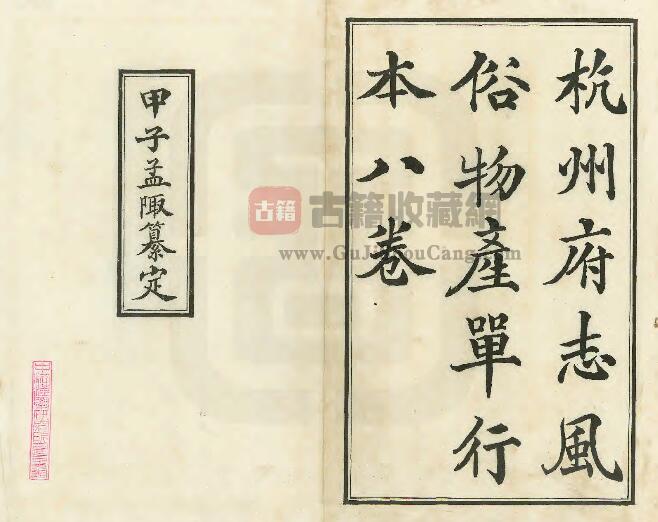 杭州府志風
俗物產單行
本八卷
甲子孟陬纂定
古籍
古籍收藏網
www.GuJiShouCang.com